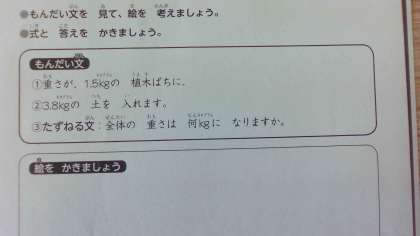 ●もんだい文を 見て、絵を 考えましょう。
●式と 答えを かきましょう。
もんだい文
①重さが、1.5kgの 植木ばちに、
②3.8kgの 土を 入れます。
③たずねる文：全体の 重さは 何kgに なりますか。
絵を かきましょう